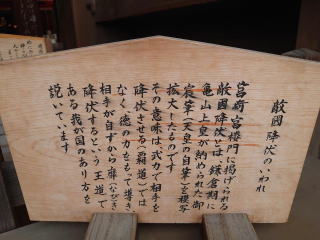 敵國降伏のいわれ
筥崎宮楼門に掲げられる
敵国降伏とは、鎌倉期に
亀山上皇が納められた御
宸筆(天皇の自筆)を模写
拡大したものです
その意味は、武力で相手を
降伏させる(覇道)では
なく、徳の力をもって導き、
相手が自ずから靡(なび)き
降伏するという王道で
ある我が国のあり方を
説いています